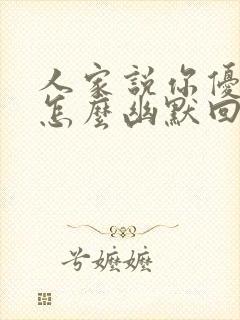 人家説你優
怎麼幽默回
兮嬤嬤